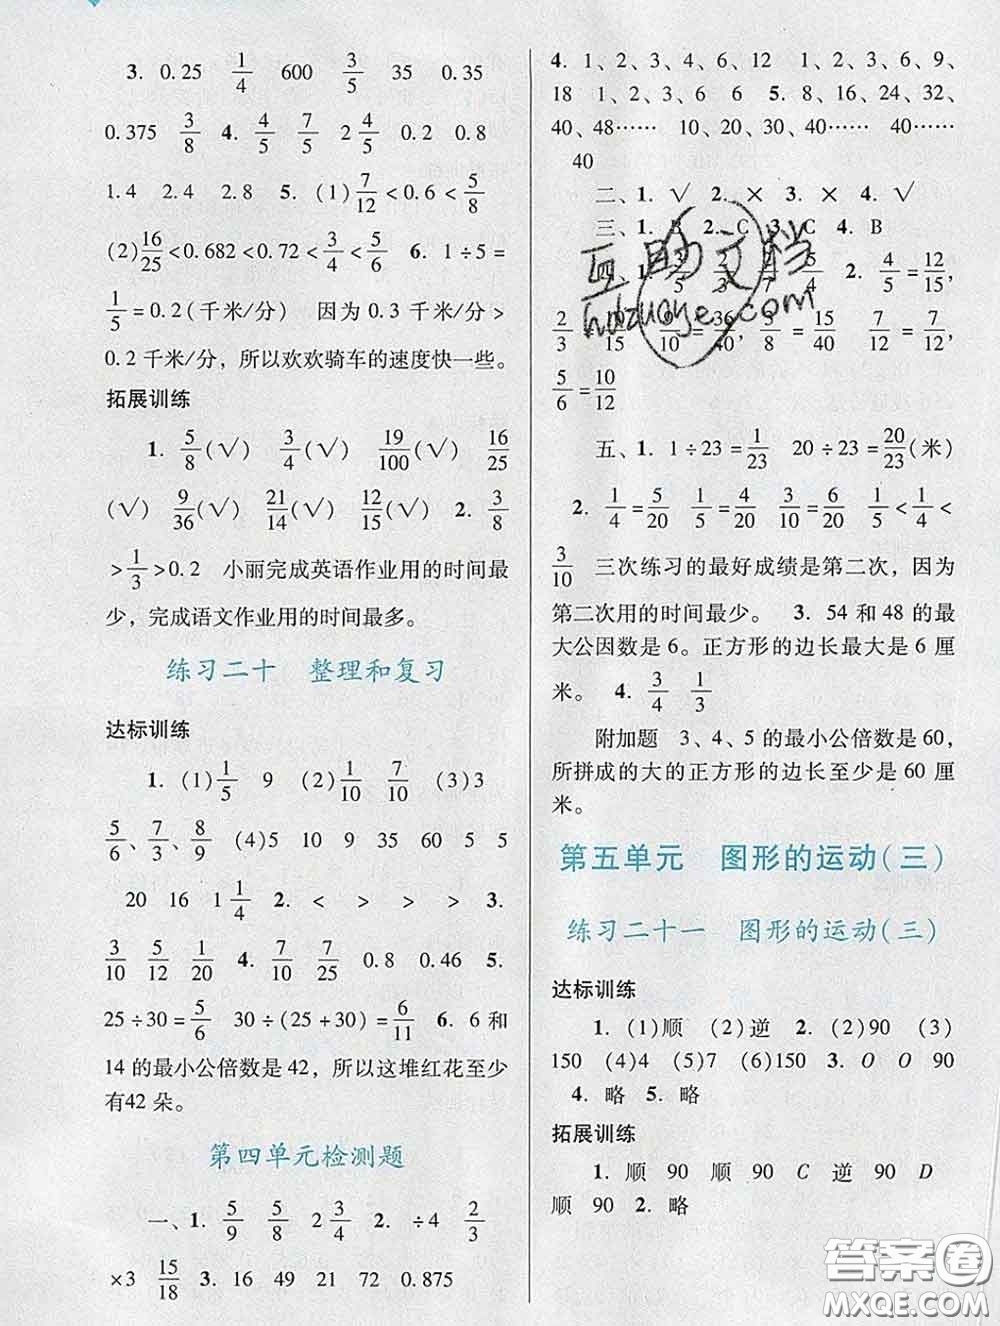 3. 0.25 1/4 600 3/5 35 0.35
0.375 3/8 4. 4/5 7/5 2 4/5 0.2 0.8
1.4 2.4 2.8 5. (1) 7/12 < 0.6 < 5/8
(2) 16/25 < 0.682 < 0.72 < 3/4 < 5/6 6. 1÷5=
1/5 = 0.2(千米/分) 因为 0.3 千米/分>
0.2 千米/分，所以欢欢骑车的速度快一些。
拓展训练
1. 5/8(√) 3/4(√) 19/100(√) 16/25
(√) 9/36(√) 21/14(√) 12/15(√) 2. 3/8
> 1/3 > 0.2 小丽完成英语作业用的时间最
少，完成语文作业用的时间最多。
练习二十 整理和复习
达标训练
1. (1) 1/5 9 (2) 1/10 7/10 (3) 3
5/6、7/3、8/9 (4)5 10 9 35 60 5 5
20 16 1 1/4 2. < > > > 3.
3/10 5/12 1/20 4. 7/10 7/25 0.8 0.46 5.
25÷30= 5/6 30÷(25+30)= 6/11 6. 6 和
14 的最小公倍数是 42，所以这堆红花至少
有42 朵。
第四单元检测题
一、1. 5/9 5/8 2 3/4 2. ÷4 2/3
×3 15/18 3. 16 49 21 72 0.875
4. 1、2、3、4、6、12 1、2、3、6、9、
18 1、2、3、6 6 5. 8、16、24、32、
40、48…… 10、20、30、40…… 40……
40
二、1. √ 2. × 3. × 4. √
三、1. B 2. C 3. C 4. B
四、1. 3/5 2/3 2/7 5/4 2. 4/5 = 12/15，
2/3 15 6/10 = 36/40，3/8 = 15/40 7/8
5/6 = 10/12
五、1. 1÷23= 1/23 20÷23= 20/23(米)
2. 1/4 = 5/20 1/5 = 4/20 3/10 = 6/20 1/5 < 1/4 <
3/10 三次练习的最好成绩是第二次，因为
第二次用的时间最少。 3. 54 和 48 的最
大公因数是 6。正方形的边长最大是 6 厘
米。 4. 3/4 1/3
附加题 3、4、5 的最小公倍数是 60，
所拼成的大的正方形的边长至少是 60 厘
米。
第五单元 图形的运动(三)
练习二十一 图形的运动(三)
达标训练
1. (1)顺 (2)逆 2. (2)90 (3)
150 (4)4 (5)7 (6)150 3. O O 90
4. 略 5. 略
拓展训练
1. 顺 90 顺 90 C 逆 90 D
顺 90 2. 略
互助文档
hdzuoye.com
答案圈
MXQE.COM